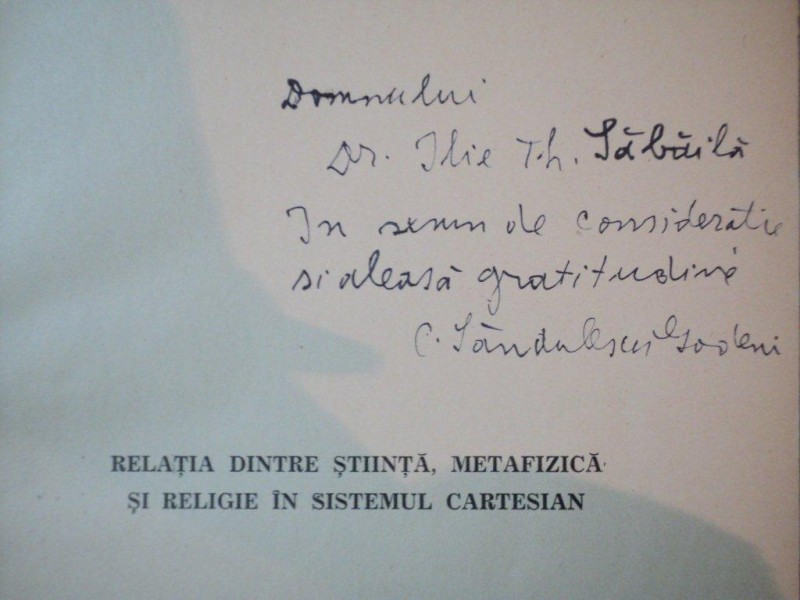 Domnului
Dr. Ilie Th. Săbăilă
In semn de consideratie
si aleasă gratitudine
C. Săndulescu Godeni
RELAȚIA DINTRE ȘTIINȚĂ, METAFIZICĂ
ȘI RELIGIE ÎN SISTEMUL CARTESIAN